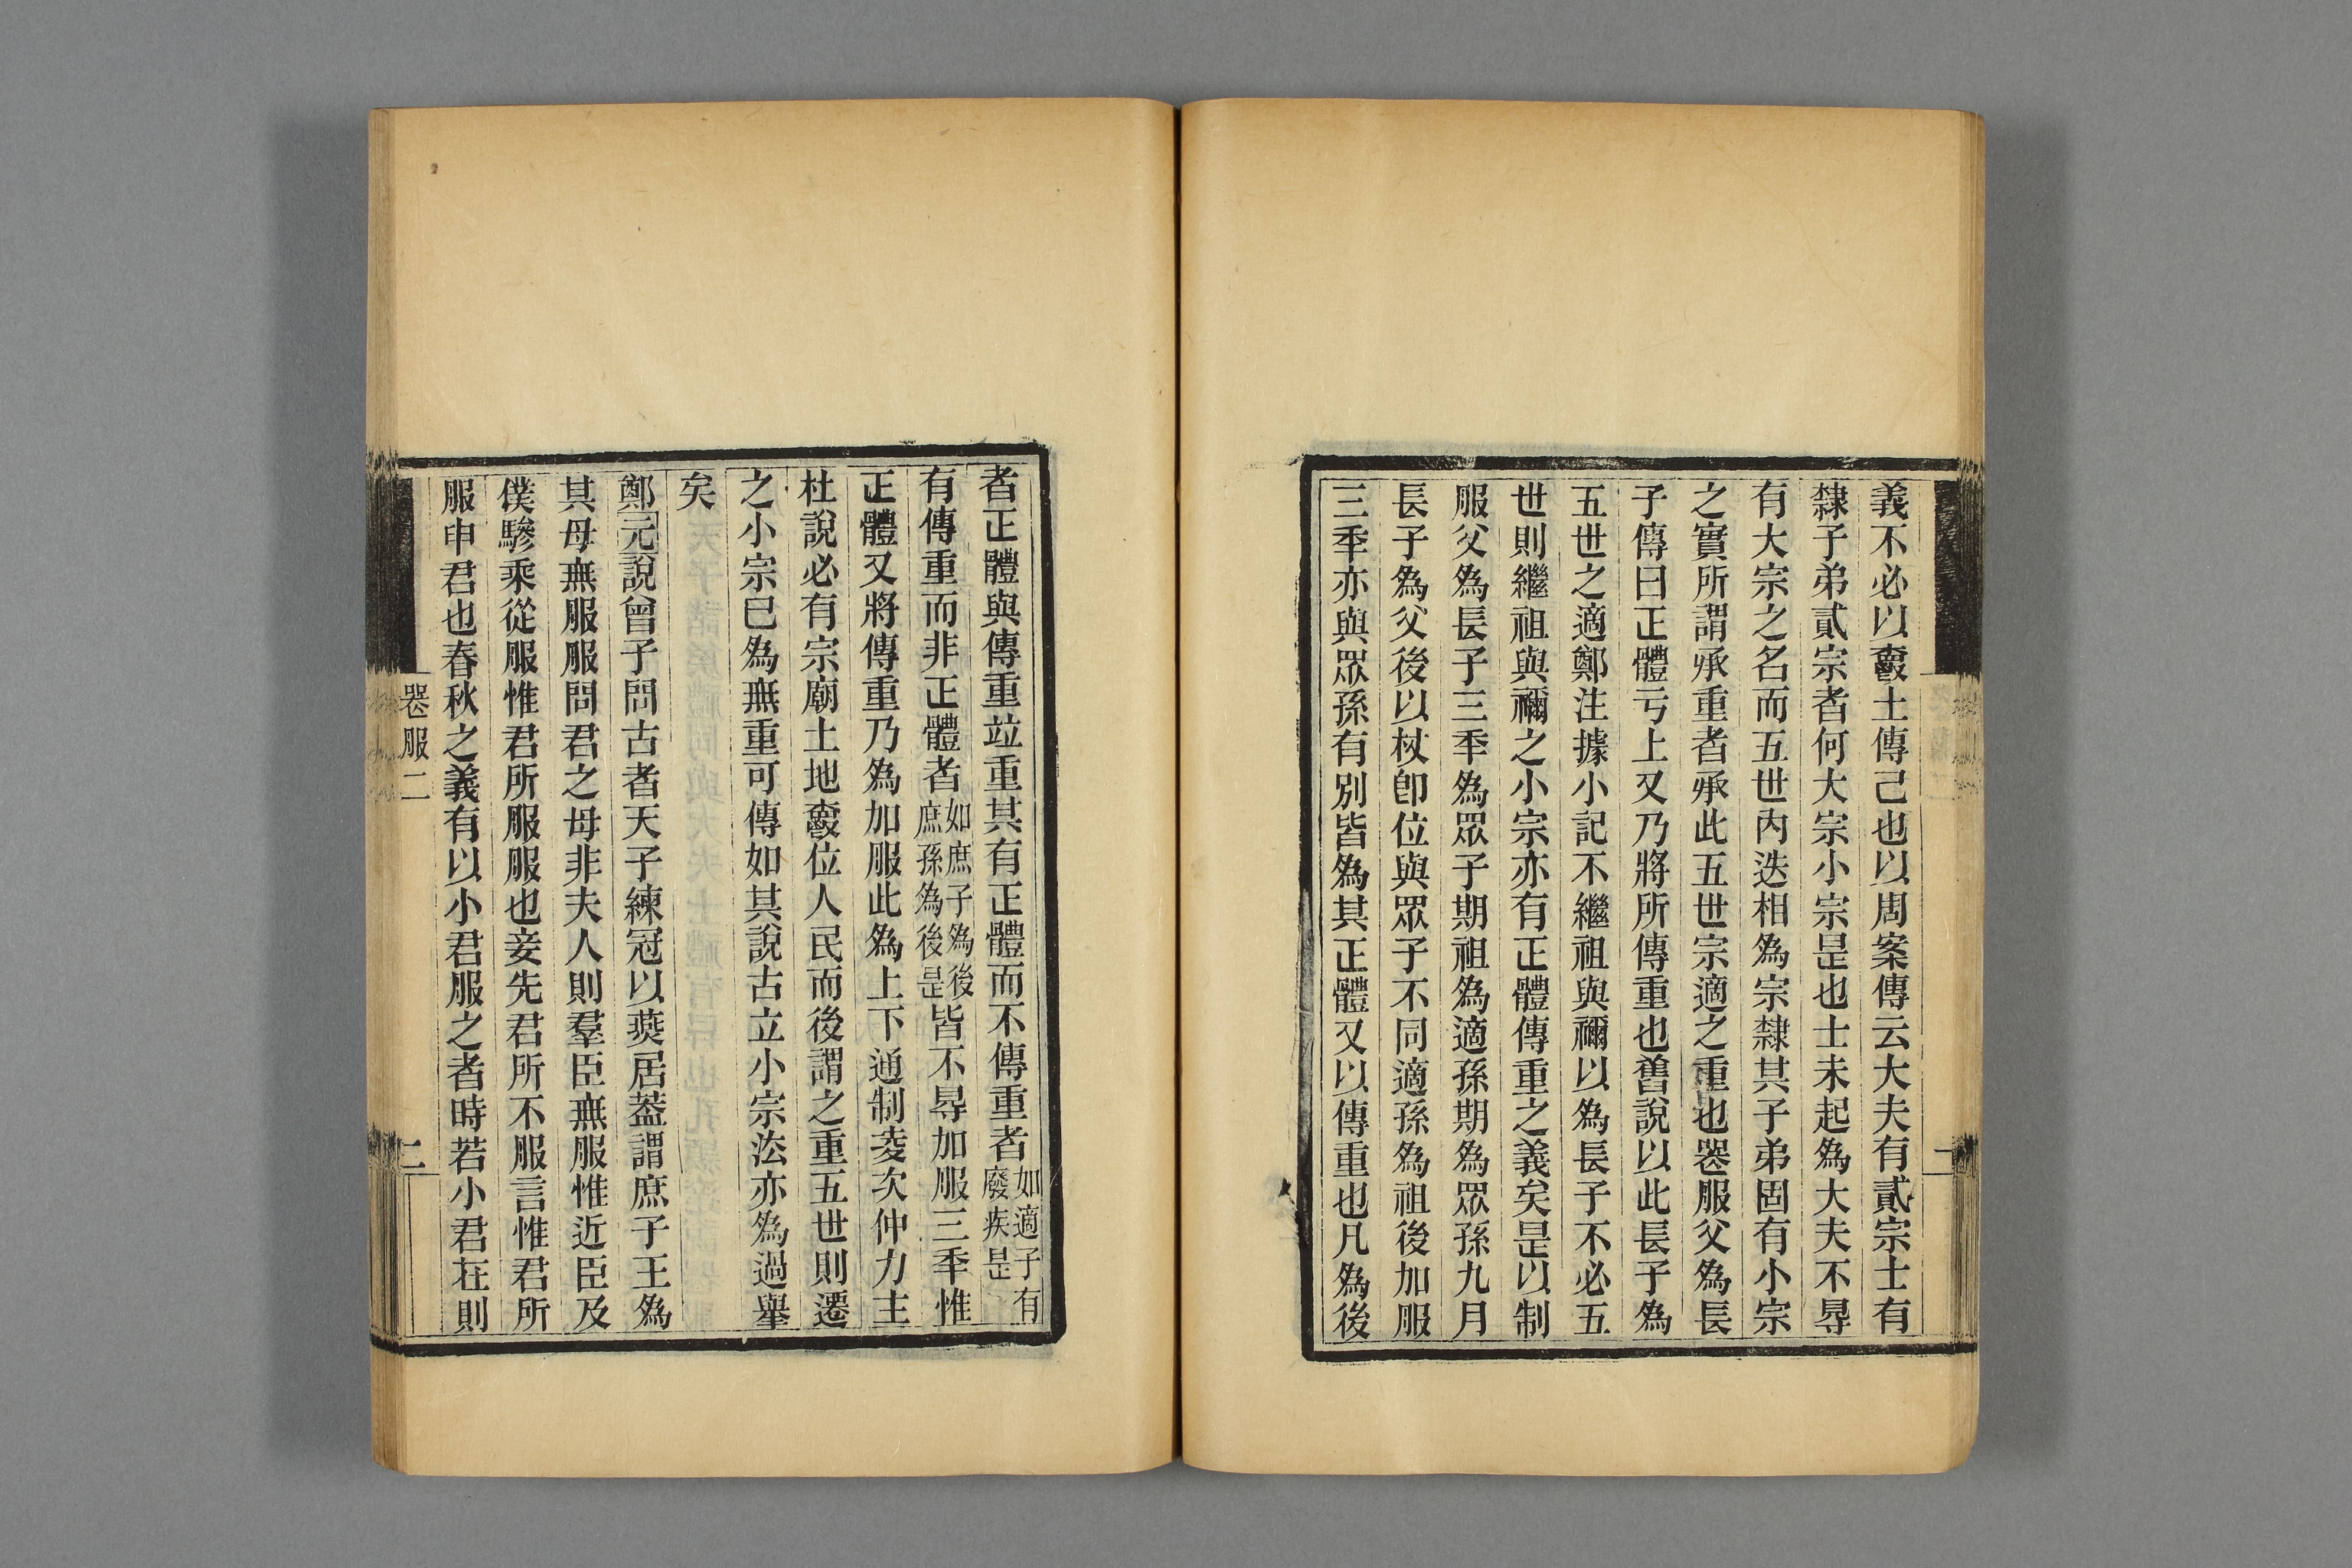 義不必以𣝔土傳己也以周案傳云大夫有貳宗士有
隸子弟貳宗者何大宗小宗昰也士未起為大夫不㝵
有大宗之名而五世內迭相為宗隸其子弟固有小宗
之實所謂承重者承此五世宗適之重也䘮服父為長
子傳曰正體亏上又乃將所傳重也舊說以此長子為
五世之適鄭注據小記不繼祖與禰以為長子不必五
世則繼祖與禰之小宗亦有正體傳重之義矣昰以制
服父為長子三秊為眾子期祖為適孫期為眾孫九月
長子為父後以杖卽位與眾子不同適孫為祖後加服
三秊亦與眾孫有別皆為其正體又以傳重也凡為後
者正體與傳重竝重其有正體而不傳重者如適子有廢疾昰
有傳重而非正體者如庶子為後庶孫為後昰皆不㝵加服三秊惟
正體又將傳重乃為加服此為上下通制夌次仲力主
杜說必有宗廟土地爵位人民而後謂之重五世則遷
之小宗已為無重可傳如其說古立小宗法亦為過舉
矣
鄭元說曾子問古者天子練冠以燕居葢謂庶子王為
其母無服服問君之母非夫人則羣臣無服惟近臣及
僕驂乘從服惟君所服服也妾先君所不服言惟君所
服申君也春秋之義有以小君服之者時若小君在則
䘮服二
二